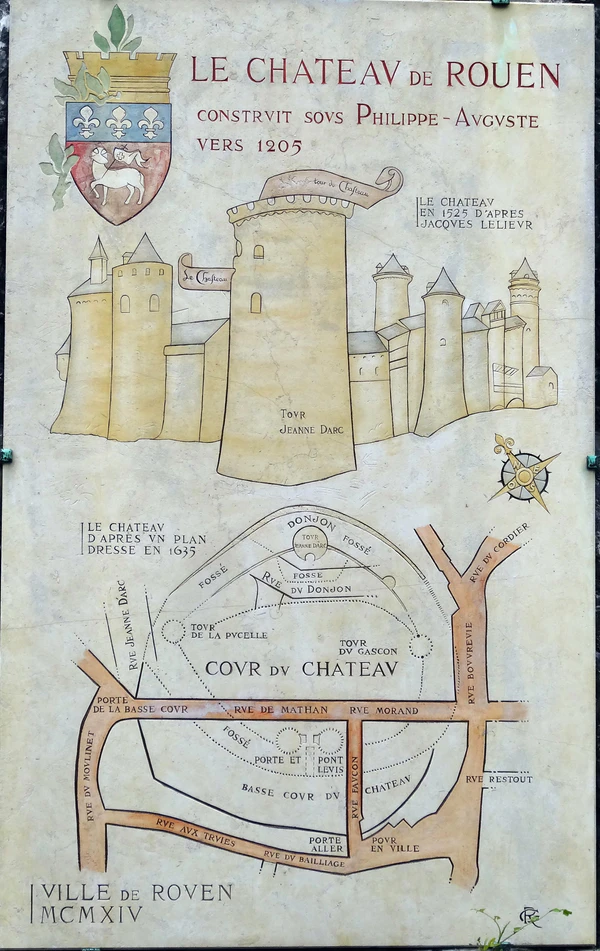 LE CHATEAV DE ROUEN
CONSTRVIT SOVS PHILIPPE-AVGVSTE
VERS 1205
tour du Chasteau
LE CHATEAV
EN 1525 D'APRES
JACQVES LELIEVR
Le Chasteau
TOVR
JEANNE DARC
LE CHATEAV
D'APRÈS VN PLAN
DRESSE EN 1635
DONJON
TOVR
JEANNE DARC
FOSSÉ
FOSSÉ
FOSSE
RVE DV DONJON
RVE DV CORDIER
RVE JEANNE DARC
TOVR
DE LA PVCELLE
TOVR
DV GASCON
COVR DV CHATEAV
RVE BOVVREVIL
PORTE
DE LA BASSE COVR
RVE DE MATHAN
RVE MORAND
FOSSÉ
PORTE ET
PONT
LEVIS
RVE DV MOVLINET
RVE FAVCON
RVE RESTOUT
BASSE COVR DV CHATEAV
RVE AUX TRVIES
PORTE
ALLER
POVR
EN VILLE
RVE DV BAILLIAGE
VILLE DE ROVEN
MCMXIV